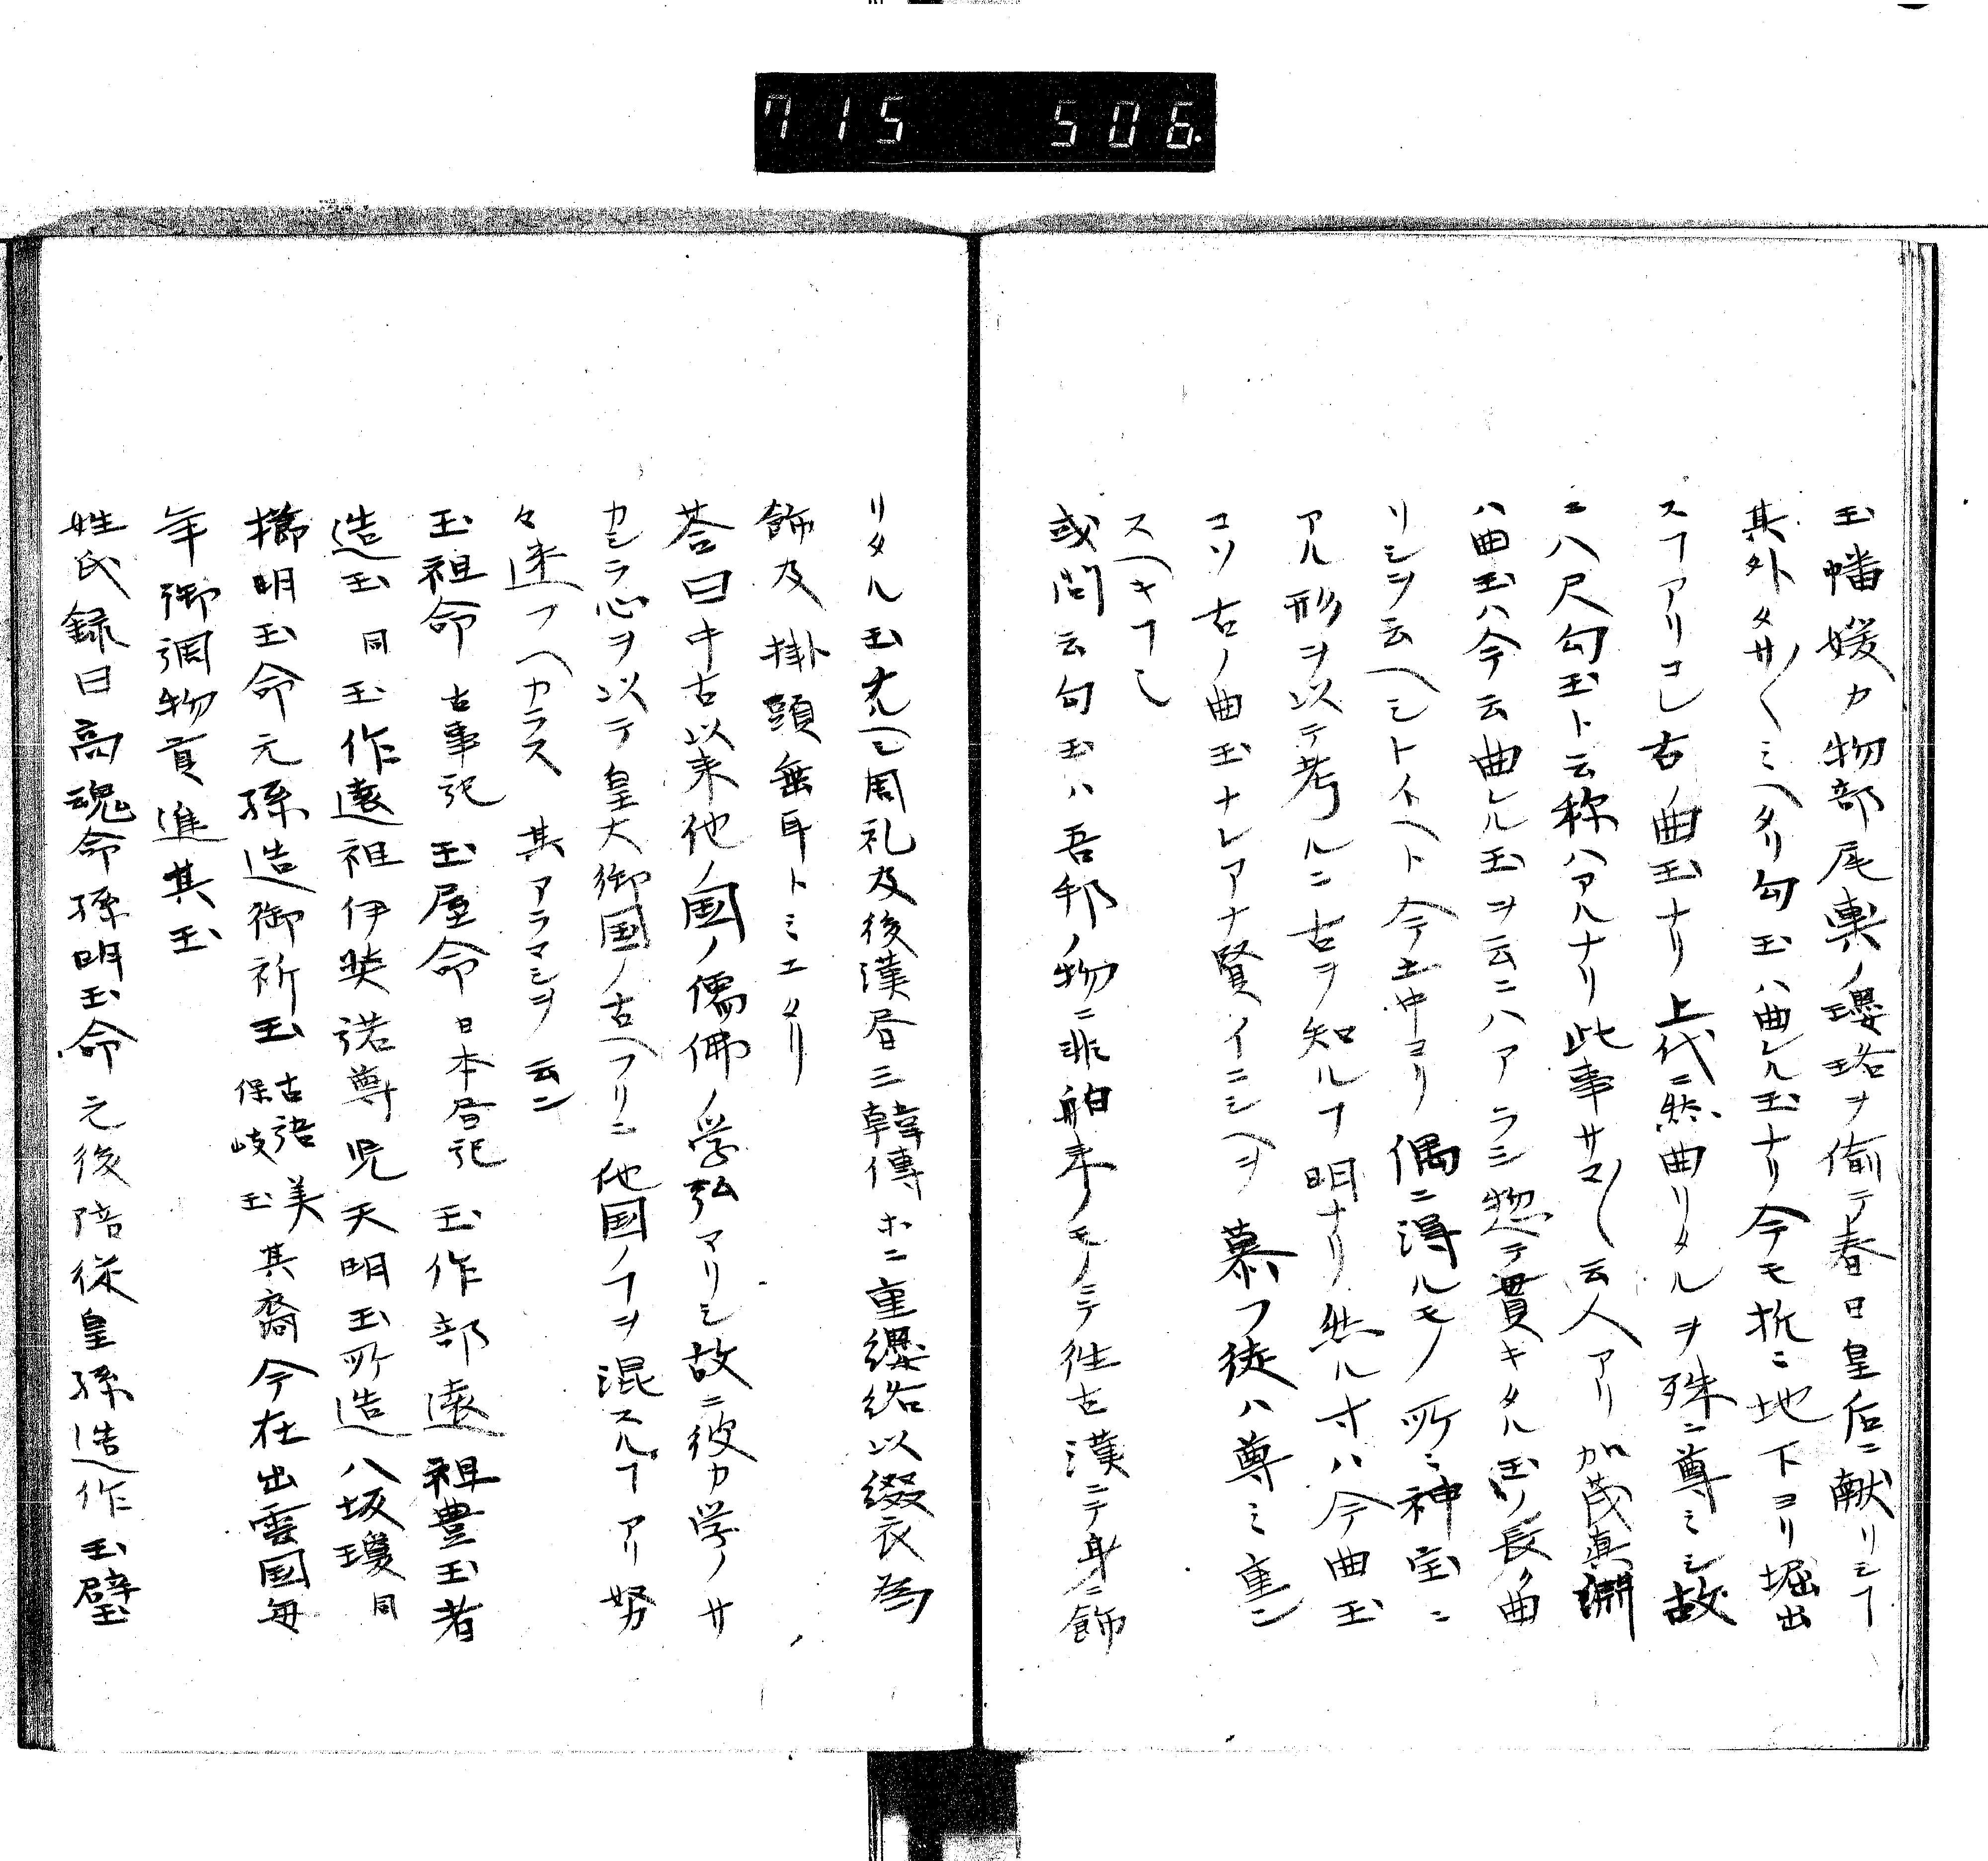 715 506.
玉幡媛カ物部尾輿ノ瓔珞ヲ偷テ春日皇后ニ献リシヿ
其外タサ〳〵ミヘタリ勾玉ハ曲レル玉ナリ今モ折ニ地下ヨリ堀出
スヿアリコレ古ノ曲玉ナリ上代ニ然曲リタルヲ殊ニ尊ミシ故
ニ八尺勾玉ト云称ハアルナリ此事サマ〳〵云人アリ加茂真淵
ハ曲玉ハ今云曲ル玉ヲ云ニハアラシ惣テ貫キタル玉ノ長ク曲
リシヲ云ヘシトイヘト今土中ヨリ偶ニ得ルモノ所ニ神宝ニ
アル形ヲ以テ考ルニ古ヲ知ルヿ明ナリ然ル寸ハ今曲玉
コソ古ノ曲玉ナレアナ賢イニシヘヲ慕フ徒ハ尊ミ重ン
スヘキヿ也
或問云勾玉ハ吾邦ノ物ニ非舶来ノモノニテ往古漢ニテ身ニ飾
リタル玉尤ヘシ周礼及後漢書三韓傳ホニ重纓絡以綴衣為
飾及掛頸垂耳トミエタリ
荅曰中古以来他ノ国ノ儒佛ノ学弘マリシ故ニ彼カ学ノサ
カシラ心ヲ以テ皇大御国ノ古ヘフリニ他国ノヿヲ混スルヿアリ努
々迷フヘカラス其アラマシヲ云ン
玉祖命 古事記 玉屋命 日本書記 玉作部遠祖豊玉者
造玉 同 玉作遠祖伊奘諾尊児天明玉所造八坂瓊 同
櫛明玉命元孫造御祈玉 古語美保岐玉 其裔今在出雲国毎
年御調物貢進其玉
姓氏録曰高魂命孫明玉命元後陪従皇孫造作玉璧